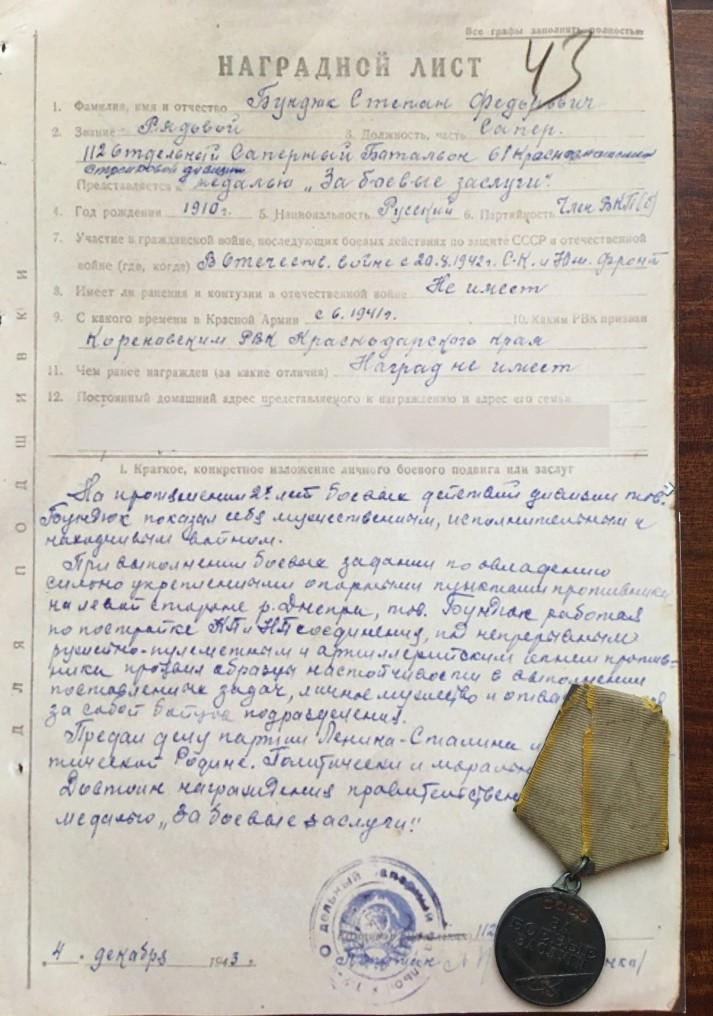 Все графы заполнять полностью
43
НАГРАДНОЙ ЛИСТ
1. Фамилия, имя и отчество Бундюк Степан Федорович
2. Звание Рядовой 3. Должность, часть Сапер.
112 Отдельный Саперный Баталвон 61 Краснознаменной
Стрелковой дивизии
Представляется к медалью „За боевые заслуги".
4. Год рождения 1910 г. 5. Национальность Русский 6. Партийность Член ВКП(б)
7. Участие в гражданской войне, последующих боевых действиях по защите СССР и отечественной
войне (где, когда) В Отечеств. войне с 20.8.1942г. С-К. и Юж. фронт
8. Имеет ли ранения и контузии в отечественной войне Не имеет
9. С какого времени в Красной Армии с 6.1941г. 10. Каким РВК призван
Кореновским РВК Краснодарского края
11. Чем ранее награжден (за какие отличия) Наград не имеет
12. Постоянный домашний адрес представляемого к награждению и адрес его семьи
ДЛЯ ПОДШИВКИ
1. Краткое, конкретное изложение личного боевого подвига или заслуг
На протяжении 2х лет боевых действий дивизии тов.
Бундюк показал себя мужественным, исполнительным и
находчивым воином.
При выполнении боевых задании по овладению
сильно укрепленными опорными пунктами противника
на левой стороне р. Днепра, тов. Бундюк работая
по постройке КП и НП соединения, под непрерывным
ружейно-пулеметным и артиллерийским огнем против-
ника проявил образцы настойчивости в выполнении
поставленных задач, личное мужество и
за собой бойцов подразделения.
Предан делу партии Ленина-Сталина и
тической Родине. Политически и
Достоин награждения
медалью „За боевые заслуги"
112
4 декабря 1943 г.
СССР
ЗА
БОЕВЫЕ
ЗАСЛУГИ